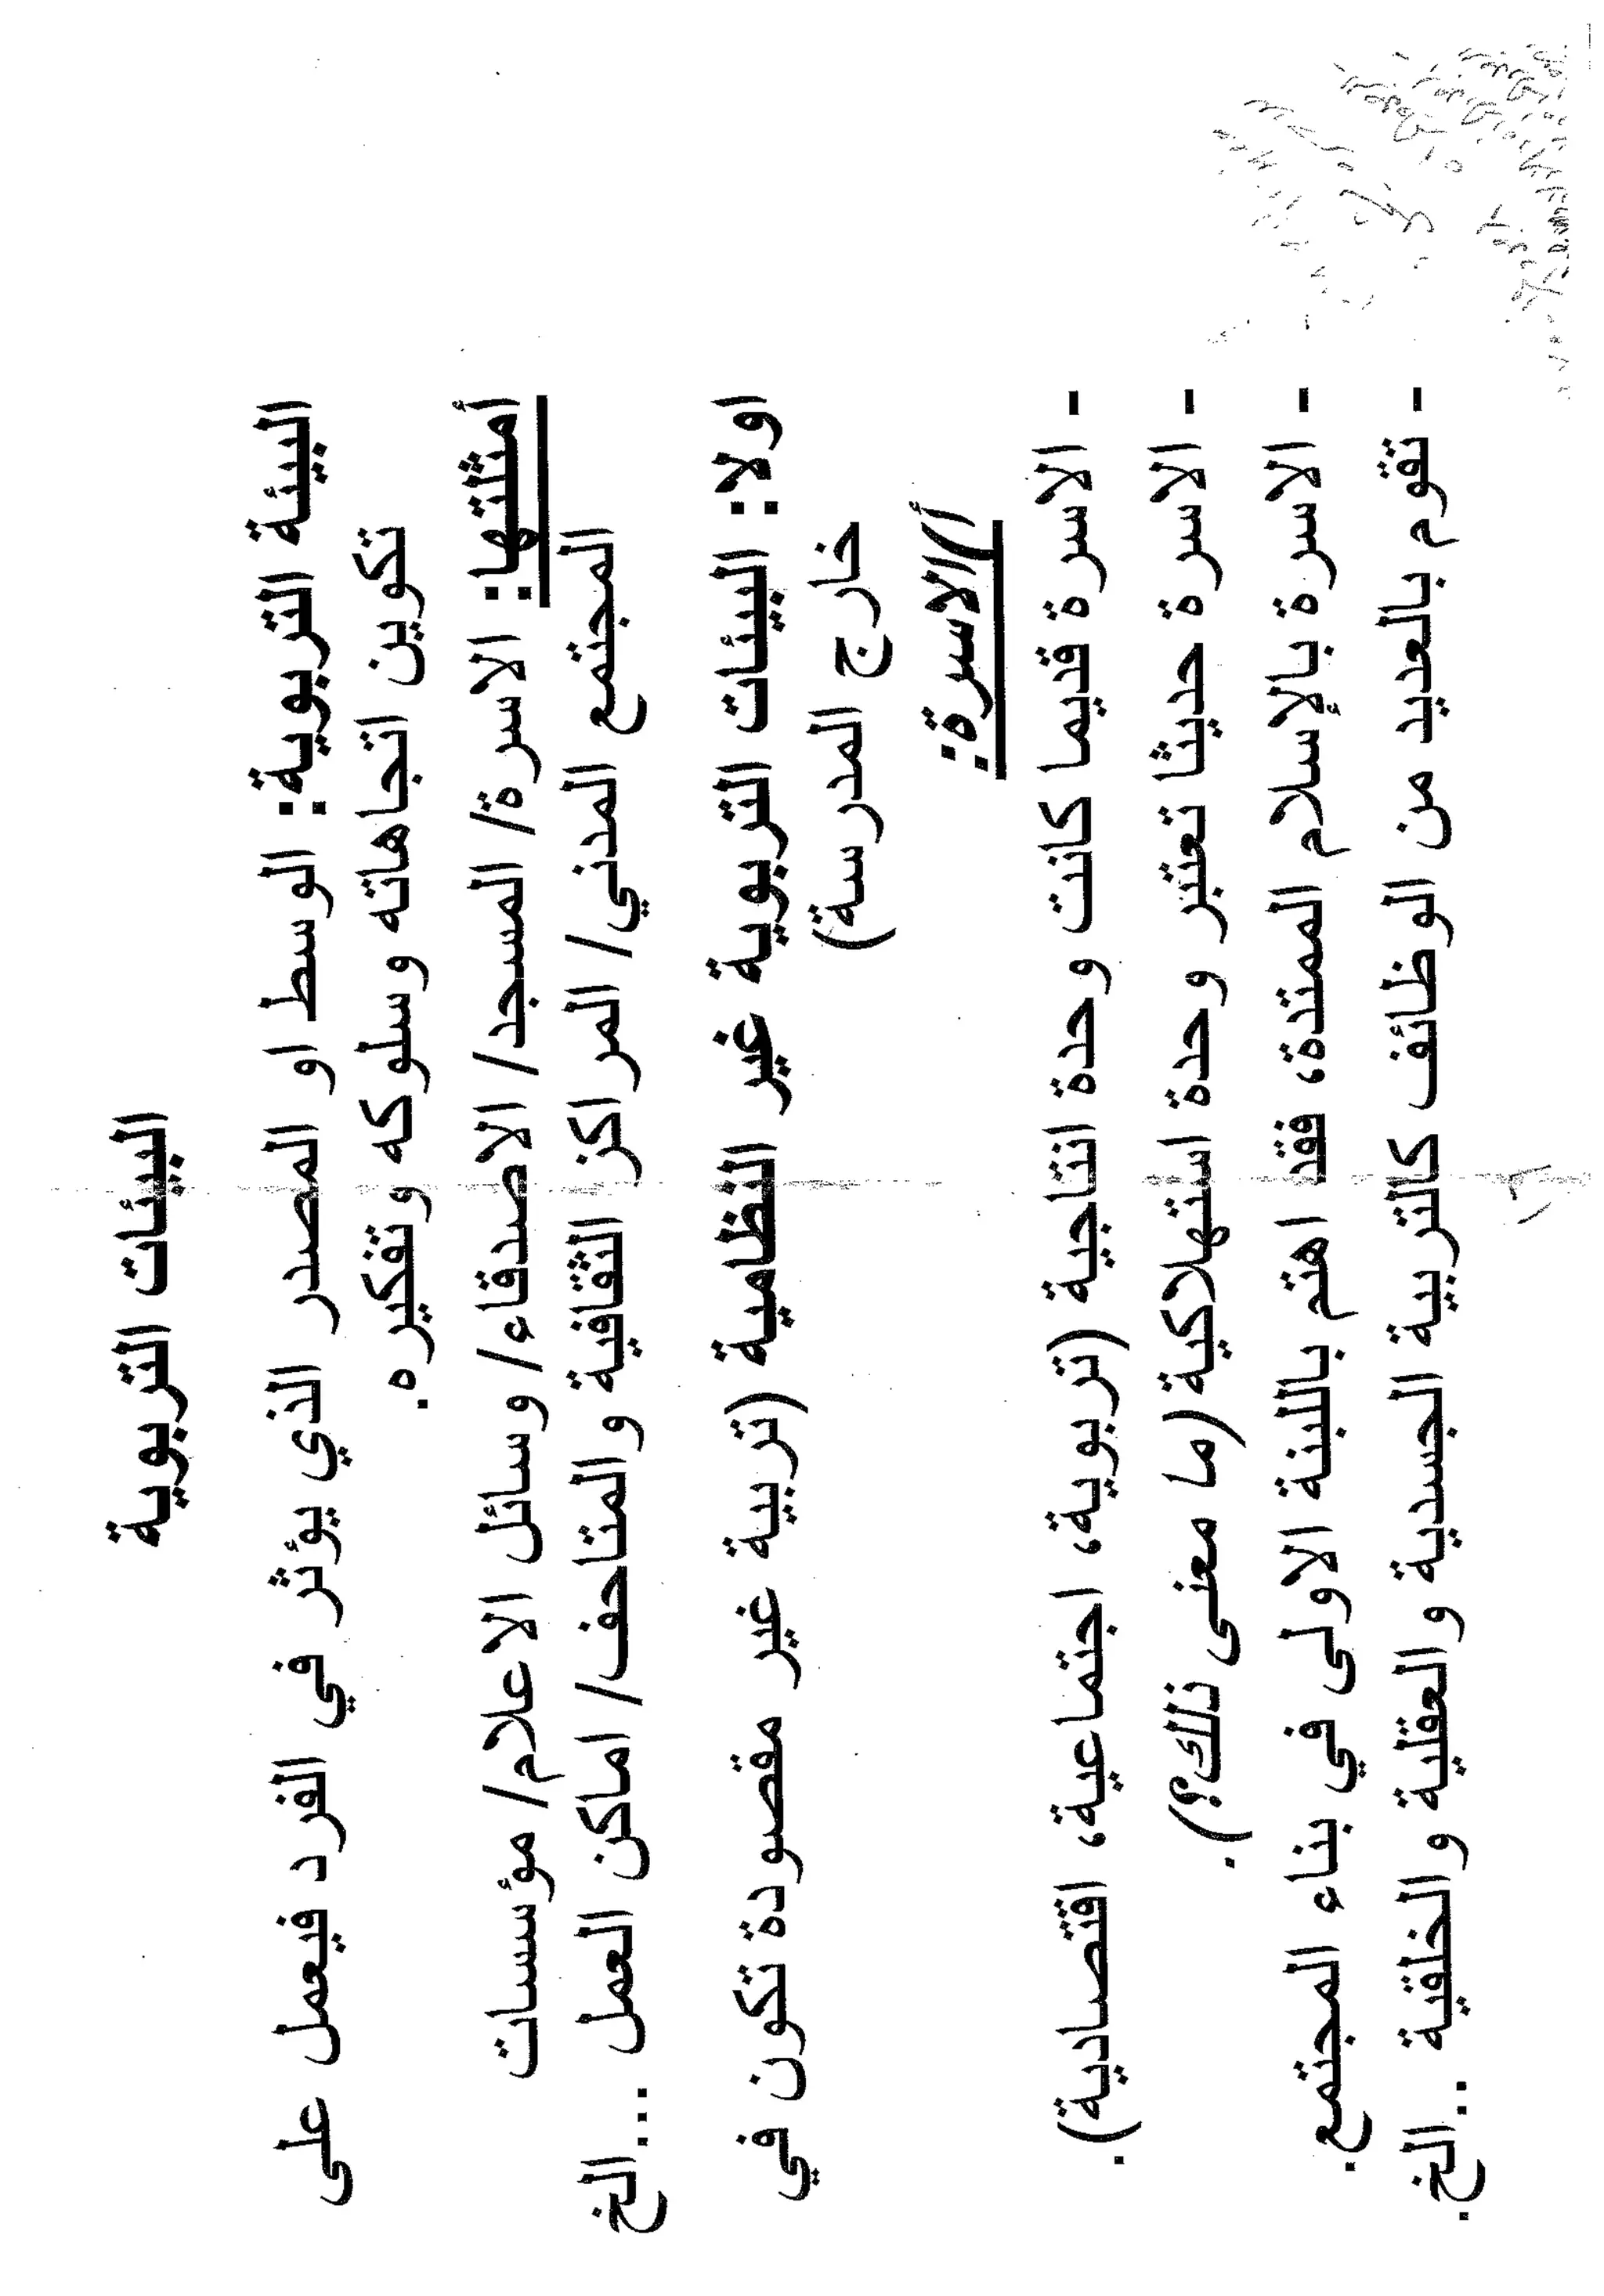 البيئات التربوية
البيئة التربوية: الوسط او المصدر الذي يؤثر في الفرد فيعمل على
تكوين اتجاهاته وسلوكه وتفكيره.
أمثلتها: الاسرة/ المسجد/ الاصدقاء/ وسائل الاعلام/ مؤسسات
المجتمع المدني/ المراكز الثقافية والمتاحف/ اماكن العمل ...الخ
اولا: البيئات التربوية غير النظامية (تربية غير مقصودة تكون في
خارج المدرسة)
أ/الاسرة:
- الاسرة قديما كانت وحدة انتاجية (تربوية، اجتماعية، اقتصادية).
- الاسرة حديثا تعتبر وحدة استهلاكية (ما معنى ذلك؟).
- الاسرة بالإسلام الممتدة، فقد اهتم باللبنة الاولى في بناء المجتمع.
- تقوم بالعديد من الوظائف كالتربية الجسدية والعقلية والخلقية ..الخ.